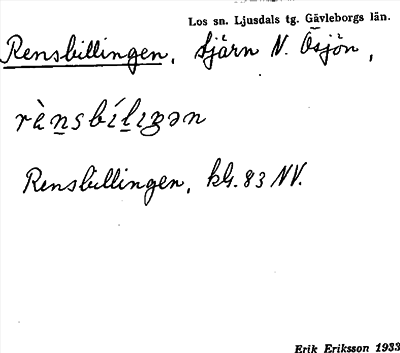 Los sn. Ljusdals tg. Gävleborgs län.
Rensbillingen, tjärn N. Ösjön,
rὲn̲sbíl̲ıgən
Rensbillingen, kbl. 83 NV.
Erik Eriksson 1933